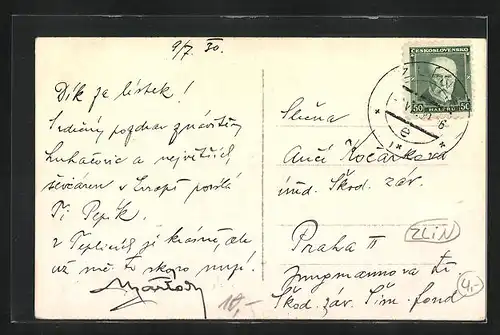 9/7. 30.
Dík za lístek!
Srdečný pozdrav z návštěvy
Luhačovic a největších
ševcáren v Evropě posílá
Ti Pepík.
V Teplicích je krásně, ale
už mě to skoro nudí.
10,-
Slečna
Anči Kočárková
úřed. Škod. záv.
Praha II
Jungmannova tř.
Škod. záv. fond
ZLÍN
4,-
ČESKOSLOVENSKO
50 HALÉŘŮ 50
e